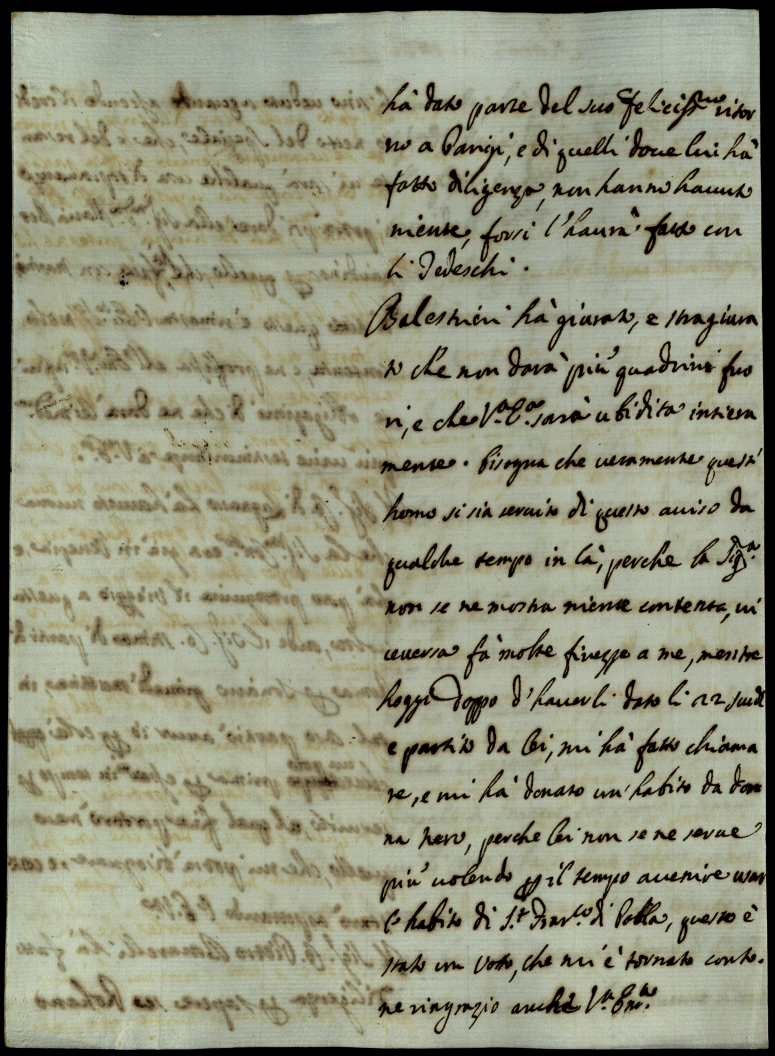 hà dato parte del suo feliciss.mo ritor
no a Parigi, e di quelli doue lui hà
fatto diligenza, non hanno hauuto
niente, forsi l'haurà fatto con
li Tedeschi.
Balestrieri hà giurato, e stragiura
to che non darà più quadrini fuo
ri, e che V.a E.a sarà ubidita intiera
mente. bisogna che ueramente quest'
homo si sia seruito di questo auiso da
qualche tempo in là, perche la Sig.a
non se ne mostra niente contenta, ui
ceuersa fà molte finezze a me, mentre
hoggi doppo d'hauerli dato li 22 scudi
e partito da lei, mi hà fatto chiama
re, e mi hà donato un'habito da don
na nero, perche lei non se ne serue
più uolendo p il tempo auenire usar
l'habito di S.t Fran.co di Polla, questo è
stato un voto, che mi è tornato conto.
ne ringrazio anche V.a Em.a